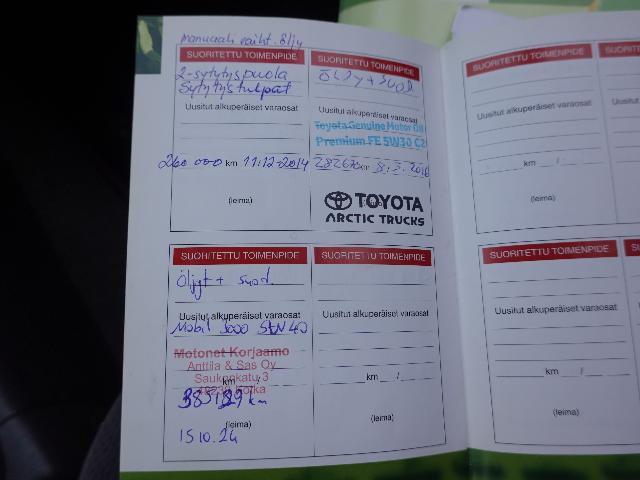 manuaali vaiht. öljy
SUORITETTU TOIMENPIDE
2-sytytyspuola
Sytytystulpat
Uusitut alkuperäiset varaosat
260 000 km 11.12-2014
(leima)
SUORITETTU TOIMENPIDE
ÖLJY + SUOD.
Uusitut alkuperäiset varaosat
Toyota Genuine Motor Oil
Premium FE 5W30 C2
km 8.3.
TOYOTA
ARCTIC TRUCKS
SUORITETTU TOIMENPIDE
Öljyt + suod.
Uusitut alkuperäiset varaosat
Mobil 3000 5W40
Motonet Korjaamo
Anttila & Sas Oy
Saukonkatu 3
km
Kotka
km
(leima)
15 10. 24
SUORITETTU TOIMENPIDE
Uusitut alkuperäiset varaosat
km __/__
(leima)
SUORITETTU TOIMENPIDE
Uusitut alkuperäiset varaosat
km __/__
(leima)
SUORITETTU TOIMENPIDE
Uusitut alkuperäiset varaosat
km __/__
(leima)